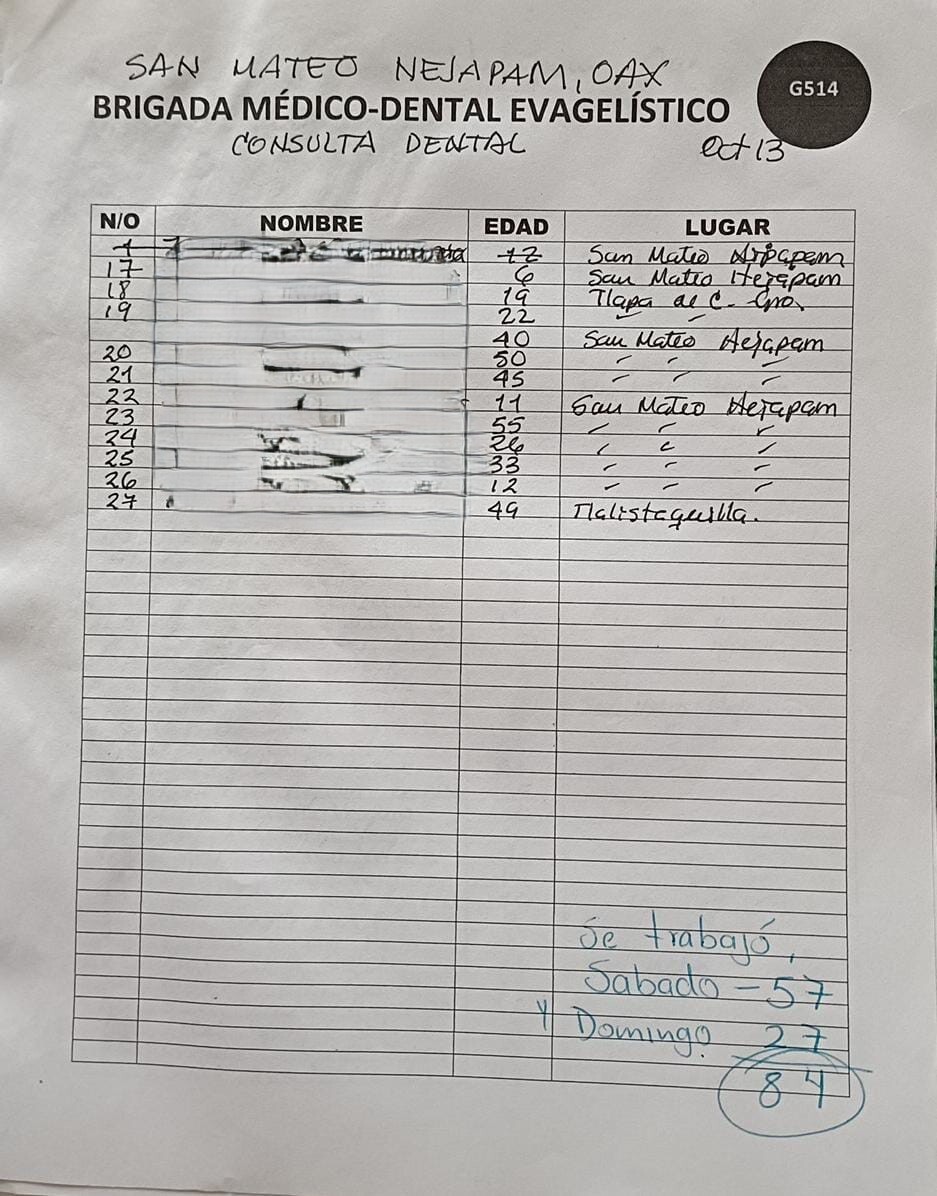 SAN MATEO NEJAPAM, OAX
G514
BRIGADA MÉDICO-DENTAL EVAGELÍSTICO
CONSULTA DENTAL Oct 13
N/O NOMBRE EDAD LUGAR
1 12 San Mateo Nejapam
17 6 San Mateo Nejapam
18 19 Tlapa de C. Gro.
19 22 " "
40 San Mateo Nejapam
20 50 " " "
21 45 " " "
22 11 San Mateo Nejapam
23 55 " " "
24 26 " " "
25 33 " " "
26 12 " " "
27 49 Tlalistaquilla.
Se trabajó,
Sabado - 57
y Domingo 27
84